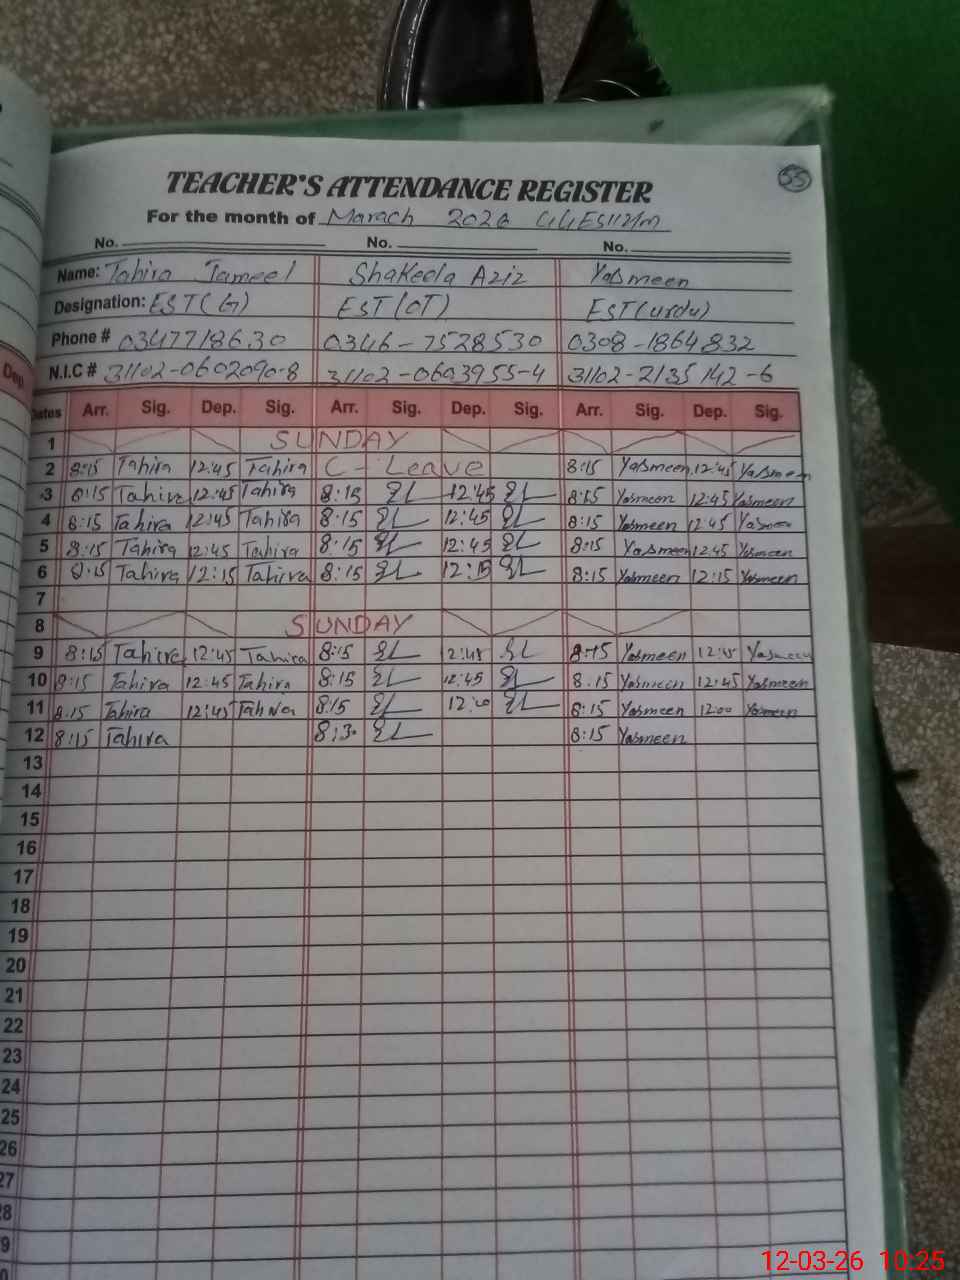 55
TEACHER'S ATTENDANCE REGISTER
For the month of Marach 2026
No. No. No.
Name: Tahira Jameel Shakeela Aziz Yasmeen
Designation: EST(G) EST(OT) EST(urdu)
Phone # 0347718630 0346-7528530 0308-1864832
N.I.C # 31102-0602090-8 31102-0603955-4 31102-2135142-6
Dep.
Dates Arr. Sig. Dep. Sig. Arr. Sig. Dep. Sig. Arr. Sig. Dep. Sig.
1 SUNDAY
2 8:15 Tahira 12:45 Tahira C-Leave 8:15 Yasmeen 12:45 Yasmeen
3 8:15 Tahira 12:45 Tahira 8:15 12:45 8:15 Yasmeen 12:45 Yasmeen
4 8:15 Tahira 12:45 Tahira 8:15 12:45 8:15 Yasmeen 12:45 Yasmeen
5 8:15 Tahira 12:45 Tahira 8:15 12:45 8:15 Yasmeen 12:45 Yasmeen
6 8:15 Tahira 12:15 Tahira 8:15 12:15 8:15 Yasmeen 12:15 Yasmeen
7
8 SUNDAY
9 8:15 Tahira 12:45 Tahira 8:15 12:45 8:15 Yasmeen 12:45 Yasmeen
10 8:15 Tahira 12:45 Tahira 8:15 12:45 8:15 Yasmeen 12:45 Yasmeen
11 8:15 Tahira 12:45 Tahira 8:15 8:15 Yasmeen 12:00 Yasmeen
12 8:15 Tahira 8:30 8:15 Yasmeen
13
14
15
16
17
18
19
20
21
22
23
24
25
26
27
28
29
12-03-26 10:25